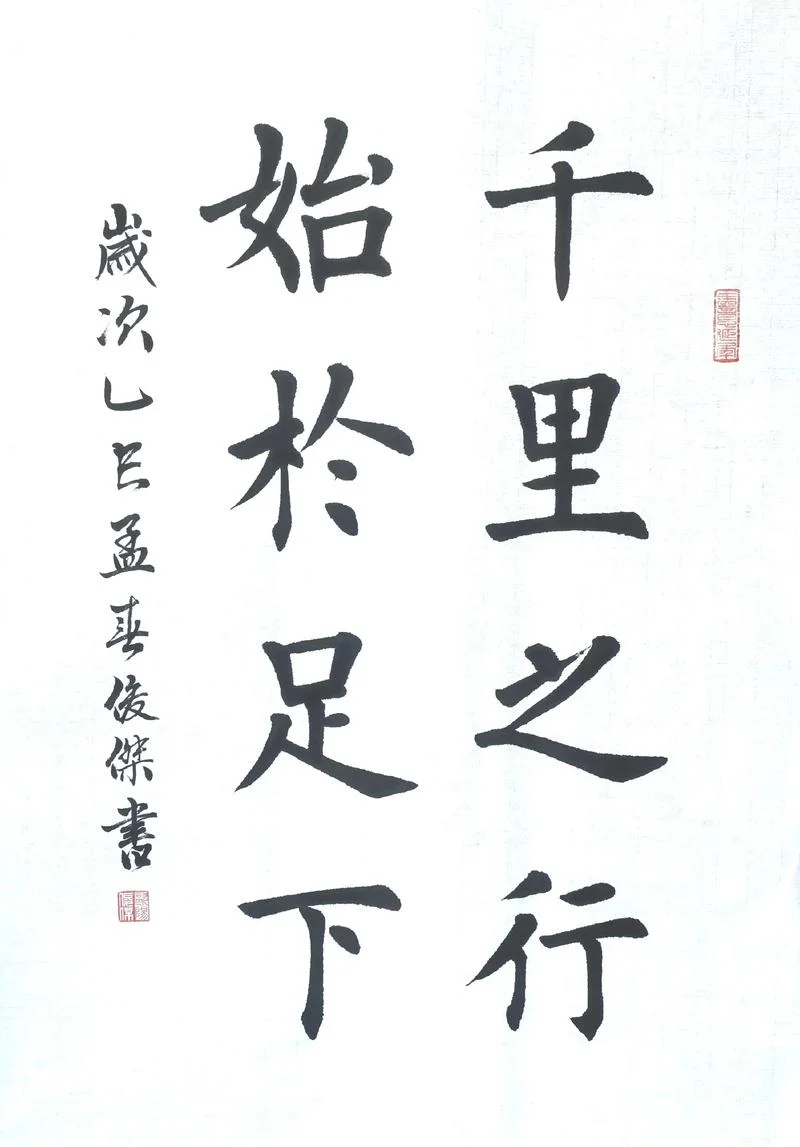 千里之行
始於足下
歲次乙巳孟春俊傑書